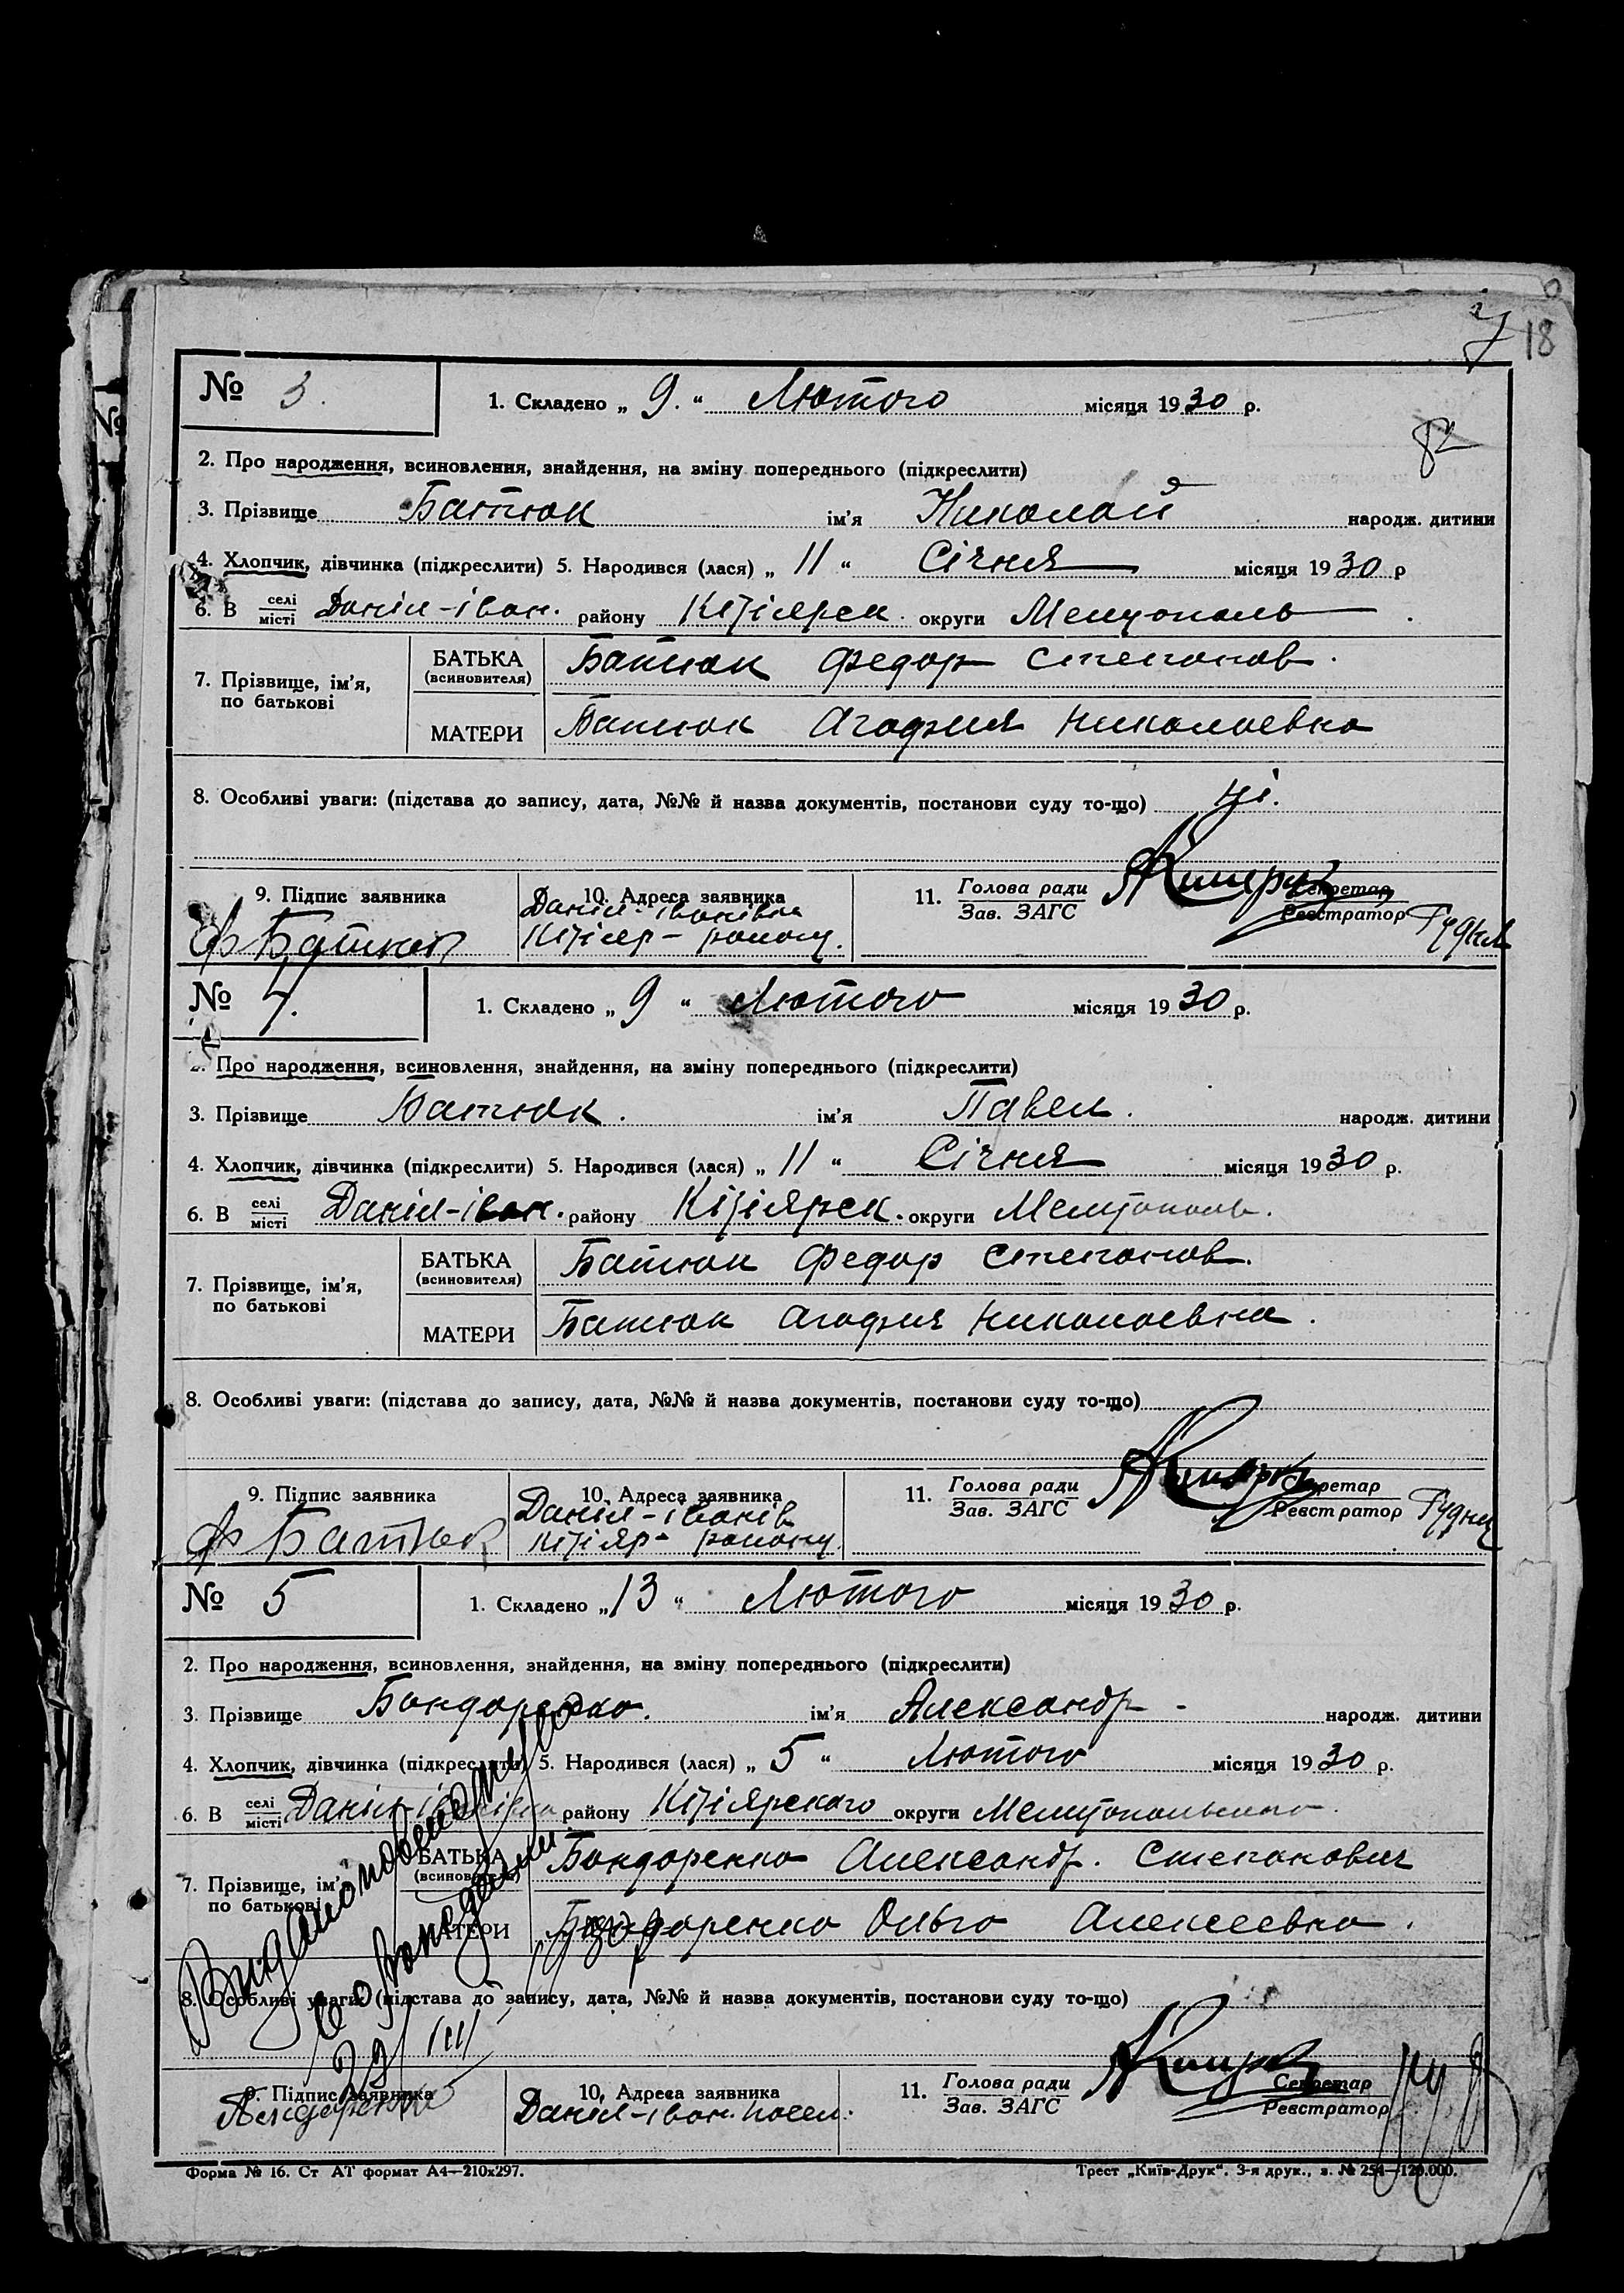 7 18
№ 3. 1. Складено „ 9. “ Лютого місяця 1930 р.
82
2. Про народження, всиновлення, знайдення, на зміну попереднього (підкреслити)
3. Прізвище Батюк ім’я Николай народж. дитини
4. Хлопчик, дівчинка (підкреслити) 5. Народився (лася) „ 11 “ Січня місяця 1930 р
6. В селі місті Даніл-іван. району Кізіярск. округи Мелитополь
7. Прізвище, ім’я, по батькові БАТЬКА (всиновителя) Батюк Федор Степанов.
МАТЕРИ Батюк Агафия Николаевна
8. Особливі уваги: (підстава до запису, дата, №№ й назва документів, постанови суду то-що)
9. Підпис заявника 10. Адреса заявника 11. Голова ради Секретар
Зав. ЗАГС Реєстратор
Ф Батюк Даніл-іванівка
Кізіяр- району.
№ 4. 1. Складено „ 9 “ Лютого місяця 1930 р.
2. Про народження, всиновлення, знайдення, на зміну попереднього (підкреслити)
3. Прізвище Батюк. ім’я Павел. народж. дитини
4. Хлопчик, дівчинка (підкреслити) 5. Народився (лася) „ 11 “ Січня місяця 1930 р.
6. В селі місті Даніл-іван. району Кізіярск. округи Мелітополь.
7. Прізвище, ім’я, по батькові БАТЬКА (всиновителя) Батюк Федор Степанов.
МАТЕРИ Батюк Агафия Николаевна.
8. Особливі уваги: (підстава до запису, дата, №№ й назва документів, постанови суду то-що)
9. Підпис заявника 10. Адреса заявника 11. Голова ради Секретар
Зав. ЗАГС Реєстратор
Ф Батюк Даніл-іванів
Кізіяр- району.
№ 5 1. Складено „ 13 “ Лютого місяця 1930 р.
2. Про народження, всиновлення, знайдення, на зміну попереднього (підкреслити)
3. Прізвище Бондаренко. ім’я Александр народж. дитини
4. Хлопчик, дівчинка (підкреслити) 5. Народився (лася) „ 5 “ Лютого місяця 1930 р.
6. В селі місті Даніл-іванівки району Кізіярского округи Мелитопольского.
7. Прізвище, ім’я, по батькові БАТЬКА (всиновителя) Бондаренко Александр. Степанович
МАТЕРИ Бондаренко Ольга Алексеевна.
8. Особливі уваги: (підстава до запису, дата, №№ й назва документів, постанови суду то-що)
9. Підпис заявника 10. Адреса заявника 11. Голова ради Секретар
Зав. ЗАГС Реєстратор
Даніл-іван.
Форма № 16. Ст АТ формат А4—210х297. Трест „Київ-Друк“. 3-я друк., з. № 254—120.000.